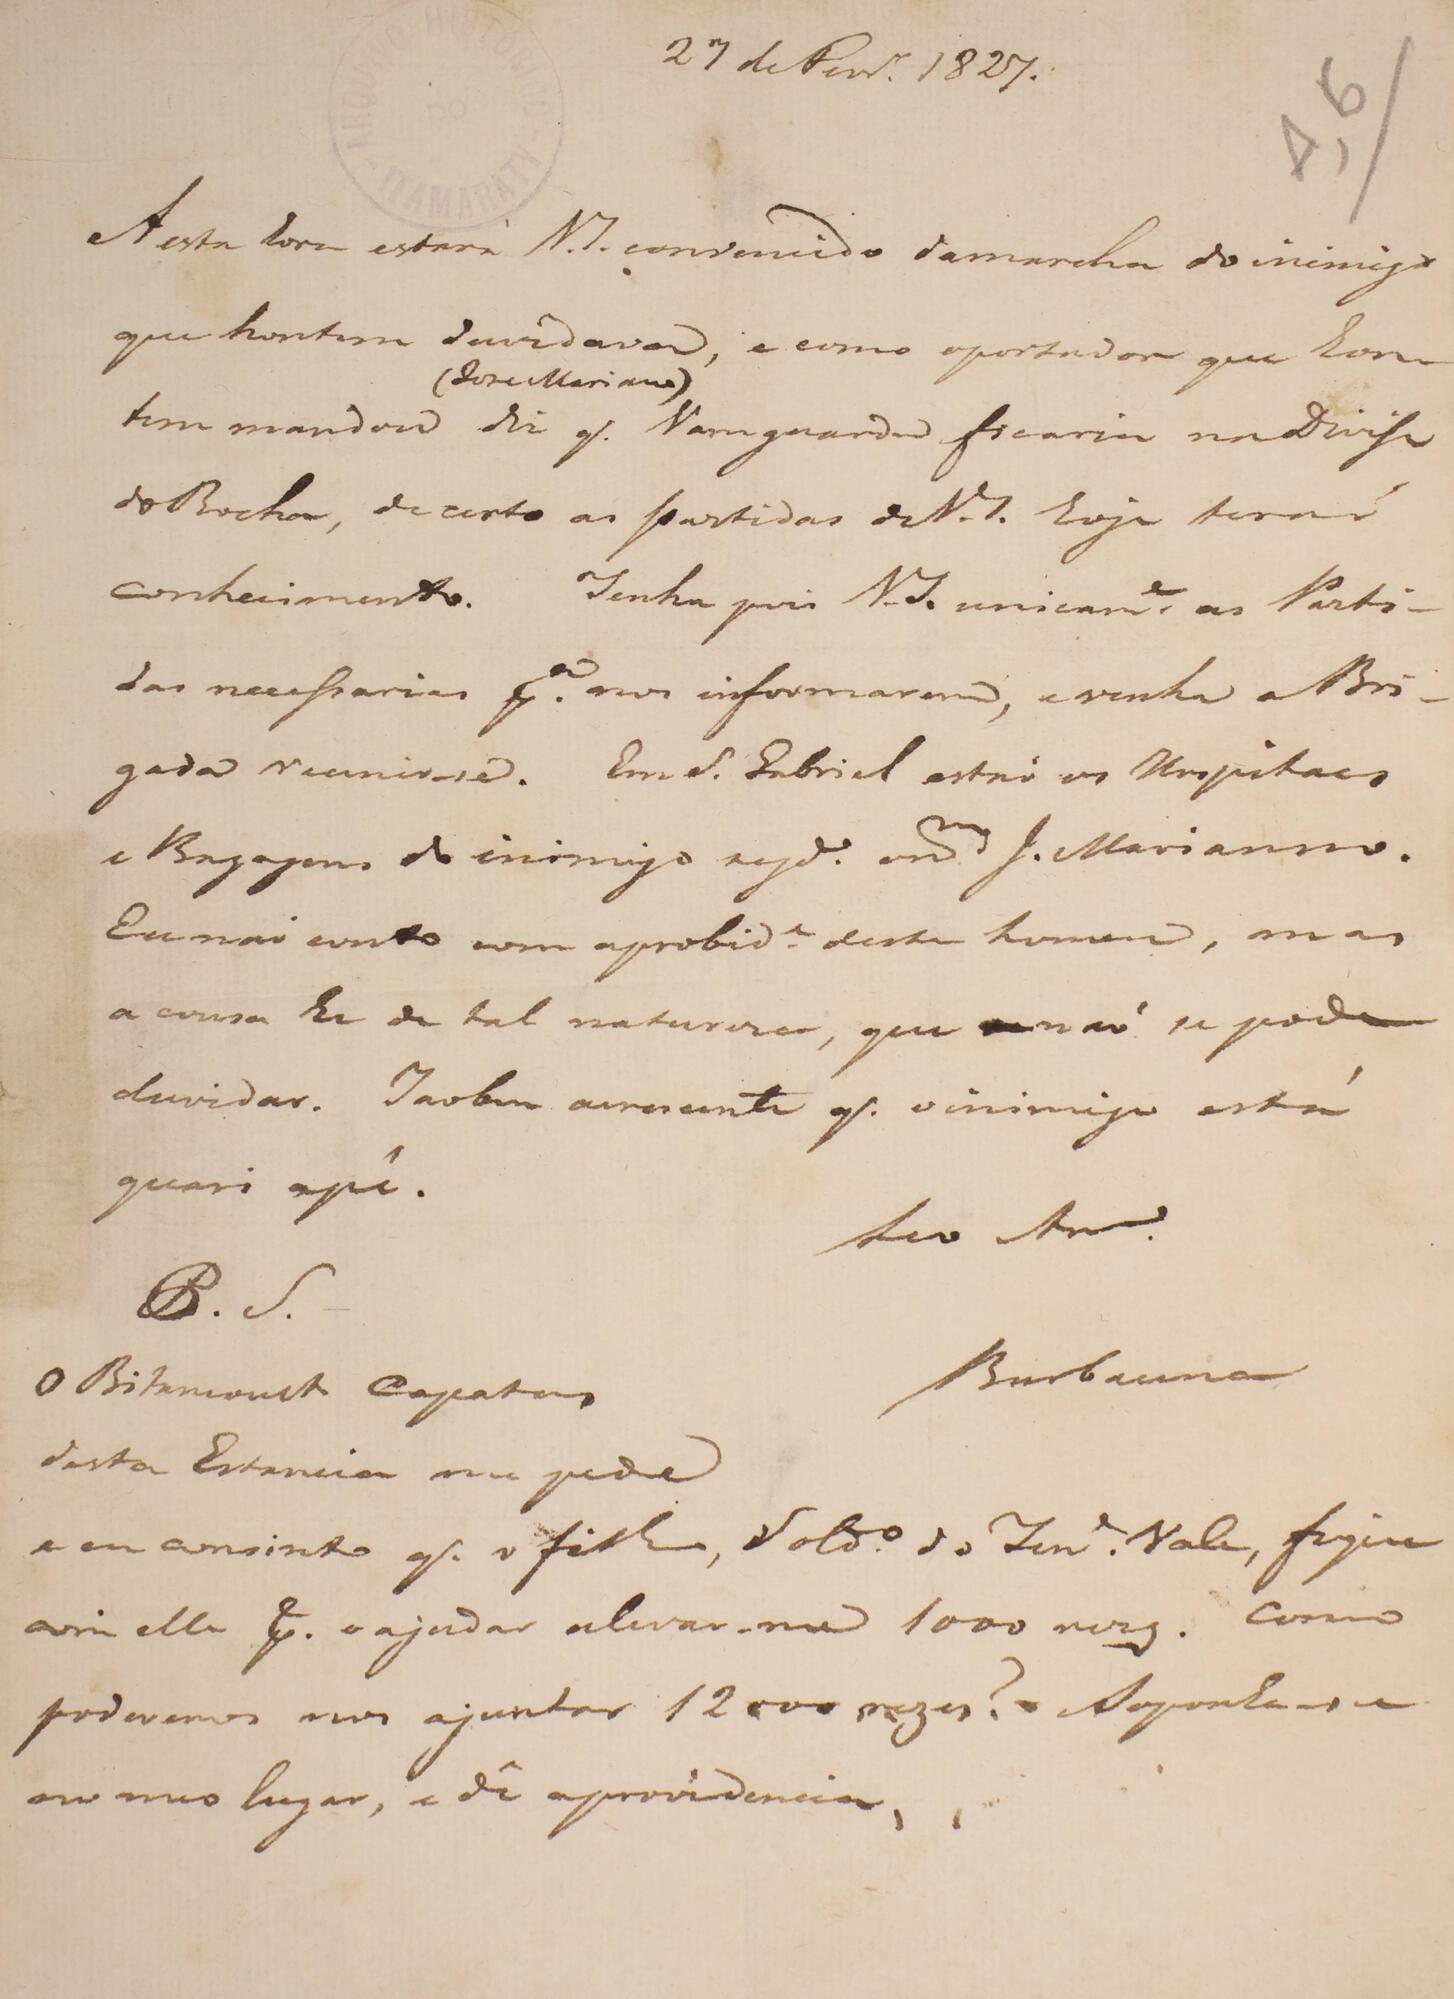 27 de Fevr. 1827.
4,6/
ARQUIVO HISTORICO DO ITAMARATY
A esta hora estará V. S. convencido da marcha do inimigo
que hontem duvidava, e como o portador que hon-
(Jose Mariano)
tem mandou diz q. Vamguarda ficaria na Divisa
do Rocha, de certo as partidas de V. S. hoje teraó
conhecimento. Tenha pois V. S. unicam.e as Parti-
das necessarias p.a nos informarem, e venha a Bri-
gada reunir-se. Em S. Gabriel estaó os Hospitaes
e Bagagens do inimigo segd.o o J. Marianno.
Eu naó conto com a probid.e deste homem, mas
a cousa he de tal natureza, que naó se pode
duvidar. Taobem acrescenta q. o inimigo está
quasi a pé.
Seo Am.o
P. S.
Barbacena
O Bitancourt Capatas
desta Estancia me pede
e eu consinto q. o filho, Sold.o do Ten.e Vale, fique
com elle p.a o ajudar a levar-me 1000 rezs. Como
poderemos nos ajuntar 12000 rezes? Soponha-se
no meo lugar, e dê a providencia,